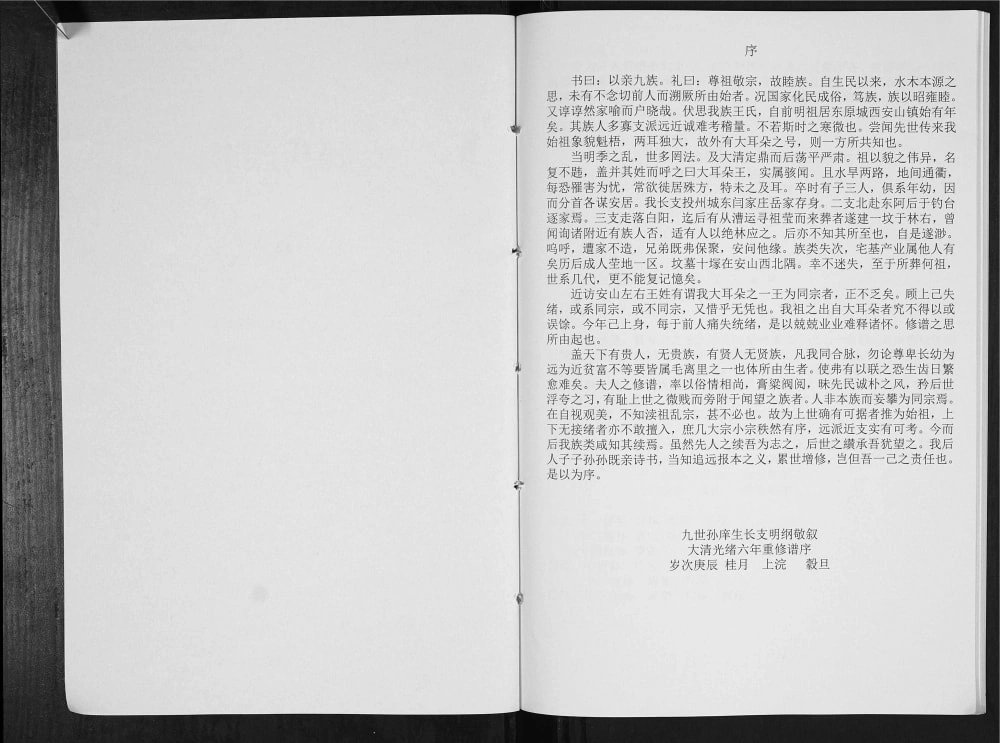 序
书曰：以亲九族。礼曰：尊祖敬宗，故睦族。自生民以来，水木本源之
思，未有不念切前人而溯厥所由始者。况国家化民成俗，笃族，族以昭雍睦。
又谆谆然家喻而户晓哉。伏思我族王氏，自前明祖居东原城西安山镇始有年
矣。其族人多寡支派远近诚难考稽量。不若斯时之寒微也。尝闻先世传来我
始祖象貌魁梧，两耳独大，故外有大耳朵之号，则一方所共知也。
当明季之乱，世多罔法。及大清定鼎而后荡平严肃。祖以貌之伟异，名
复不韪，盖并其姓而呼之曰大耳朵王，实属骇闻。且水旱两路，地间通衢，
每恐罹害为忧，常欲徙居殊方，特未之及耳。卒时有子三人，俱系年幼，因
而分首各谋安居。我长支投州城东闫家庄岳家存身。二支北赴东阿后于钓台
逐家焉。三支走落白阳，迄后有从漕运寻祖茔而来葬者遂建一坟于林右，曾
闻询诸附近有族人否，适有人以绝林应之。后亦不知其所至也，自是遂渺。
呜呼，遭家不造，兄弟既弗保聚，安问他缘。族类失次，宅基产业属他人有
矣历后成人茔地一区。坟墓十塚在安山西北隅。幸不迷失，至于所葬何祖，
世系几代，更不能复记憶矣。
近访安山左右王姓有谓我大耳朵之一王为同宗者，正不乏矣。顾上己失
绪，或系同宗，或不同宗，又惜乎无凭也。我祖之出自大耳朵者究不得以或
误馀。今年己上身，每于前人痛失统绪，是以兢兢业业难释诸怀。修谱之思
所由起也。
盖天下有贵人，无贵族，有贤人无贤族，凡我同合脉，勿论尊卑长幼为
远为近贫富不等要皆属毛离里之一也体所由生者。使弗有以联之恐生齿日繁
愈难矣。夫人之修谱，率以俗情相尚，膏粱阀阅，昧先民诚朴之风，矜后世
浮夸之习，有耻上世之微贱而旁附于闻望之族者。人非本族而妄攀为同宗焉。
在自视观美，不知渎祖乱宗，甚不必也。故为上世确有可据者推为始祖，上
下无接绪者亦不敢擅入，庶几大宗小宗秩然有序，远派近支实有可考。今而
后我族类咸知其续焉。虽然先人之续吾为志之，后世之纘承吾犹望之。我后
人子子孙孙既亲诗书，当知追远报本之义，累世增修，岂但吾一己之责任也。
是以为序。
九世孙庠生长支明纲敬叙
大清光绪六年重修谱序
岁次庚辰 桂月 上浣 毂旦